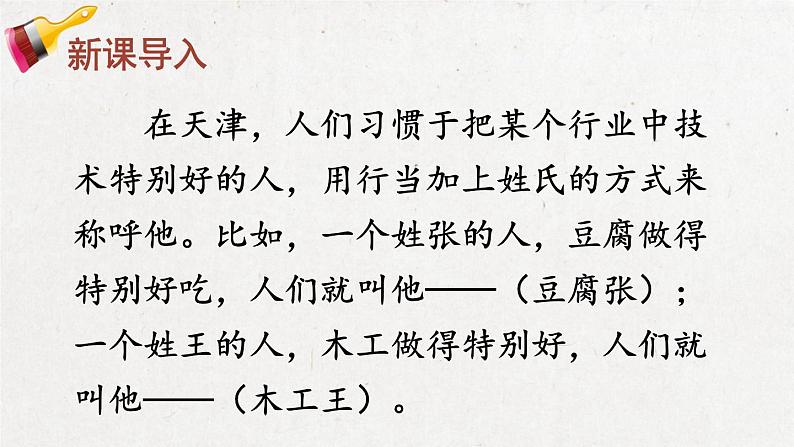 新课导入
在天津，人们习惯于把某个行业中技
术特别好的人，用行当加上姓氏的方式来
称呼他。比如，一个姓张的人，豆腐做得
特别好吃，人们就叫他——（豆腐张）；
一个姓王的人，木工做得特别好，人们就
叫他——（木工王）。